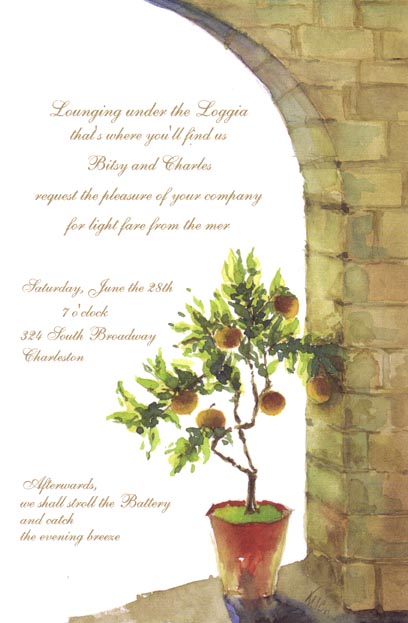 Lounging under the Loggia
that's where you'll find us
Bitsy and Charles
request the pleasure of your company
for light fare from the mer
Saturday, June the 28th
7 o'clock
324 South Broadway
Charleston
Afterwards,
we shall stroll the Battery
and catch
the evening breeze